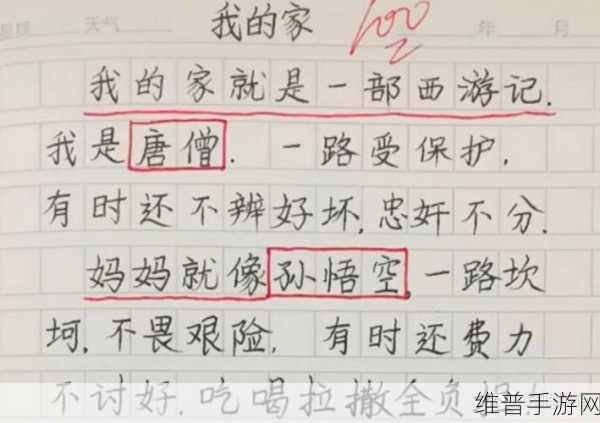 天气 年 月
我的家 100
我的家就是一部西游记.
我是唐僧. 一路受保护,
有时还不辨好坏,忠奸不分.
妈妈就像孙悟空,一路坎
坷,不畏艰险, 有时还费力
不讨好.吃喝拉撒全负担!
维普手游网